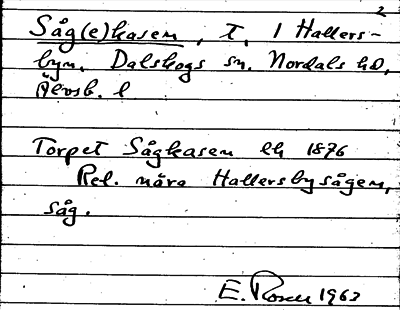 2
Såg(e)kasen, T, 1 Hallers-
byn, Dalskogs sn. Nordals hd,
Älvsb. l
Torpet Sågkasen EK 1876
Rel. nära Hallersbysågen,
såg.
E. Rosen 1963